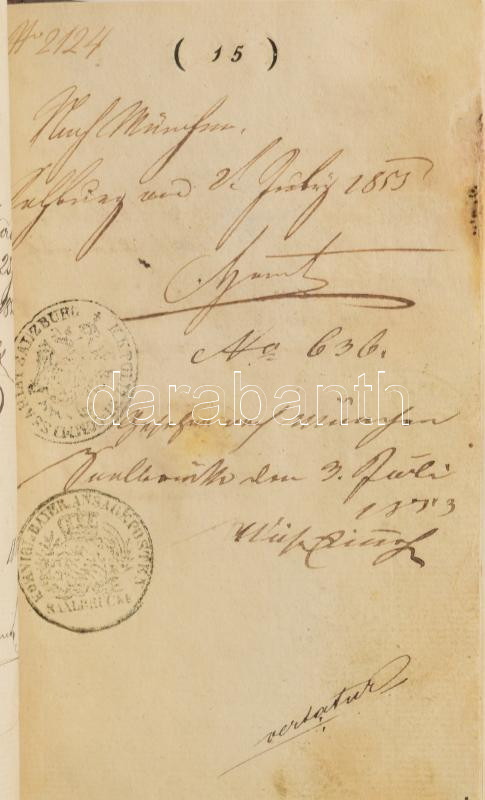 No 2124
( 15 )
Nach München.
Salzburg am 2. July 1853
No 636.
darabanth
nach München
Saalbrücke den 3. Juli
1853
KOENIGL. BAYER. ANSAGE-POSTEN
SAALBRÜCKE
SALZBURG
vertatur